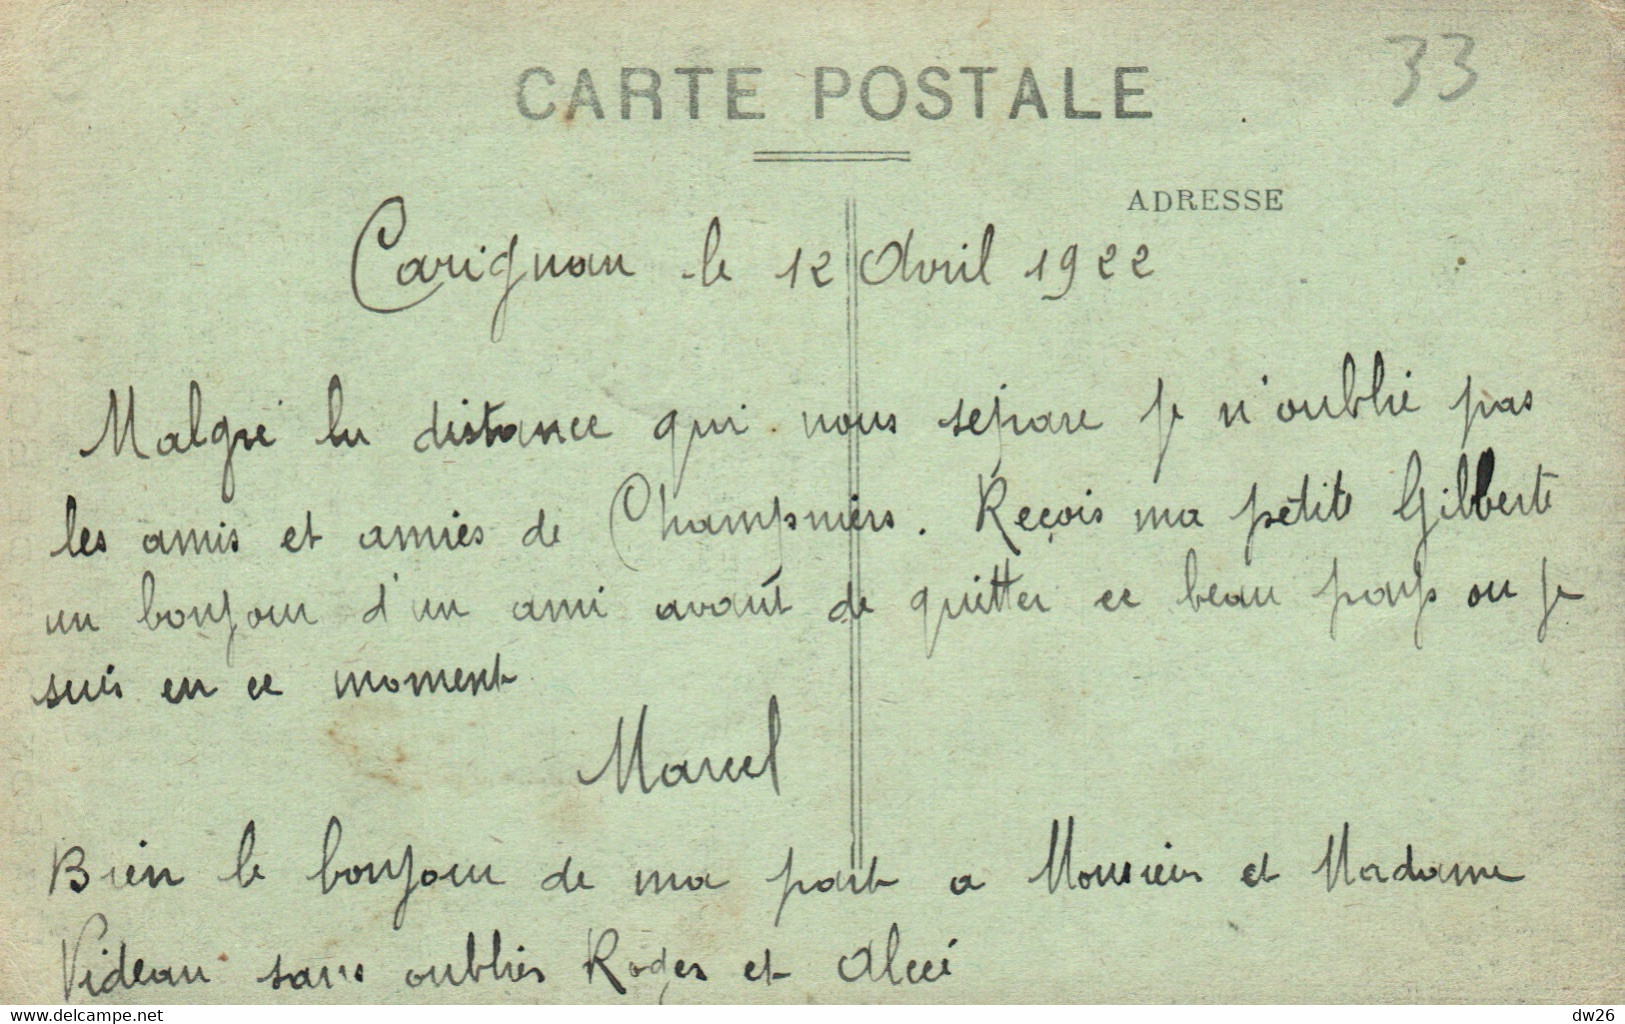 CARTE POSTALE
33
ADRESSE
Carignan le 12 Avril 1922
Malgré la distance qui nous sépare je n'oublie pas
les amis et amies de Champniers. Reçois ma petite Gilberte
un bonjour d'un ami avant de quitter ce beau pays ou je
suis en ce moment
Marcel
Bien le bonjour de ma part a Monsieur et Madame
Videau sans oublier Roger et Alcée
www.delcampe.net
dw26